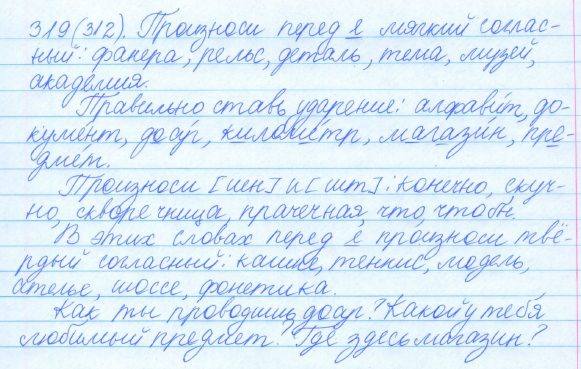 319(312). Произноси перед е мягкий соглас-
ный: фанера, рельс, деталь, тема, музей,
академия.
Правильно ставь ударение: алфави́т, до-
куме́нт, досу́г, киломе́тр, магази́н, пре-
дме́т.
Произноси [шн] и [шт]: конечно, скуч-
но, скворечница, прачечная, что, чтобы.
В этих словах перед е произноси твё-
рдый согласный: кашне, теннис, модель,
ателье, шоссе, фонетика.
Как ты проводишь досуг? Какой у тебя
любимый предмет? Где здесь магазин?